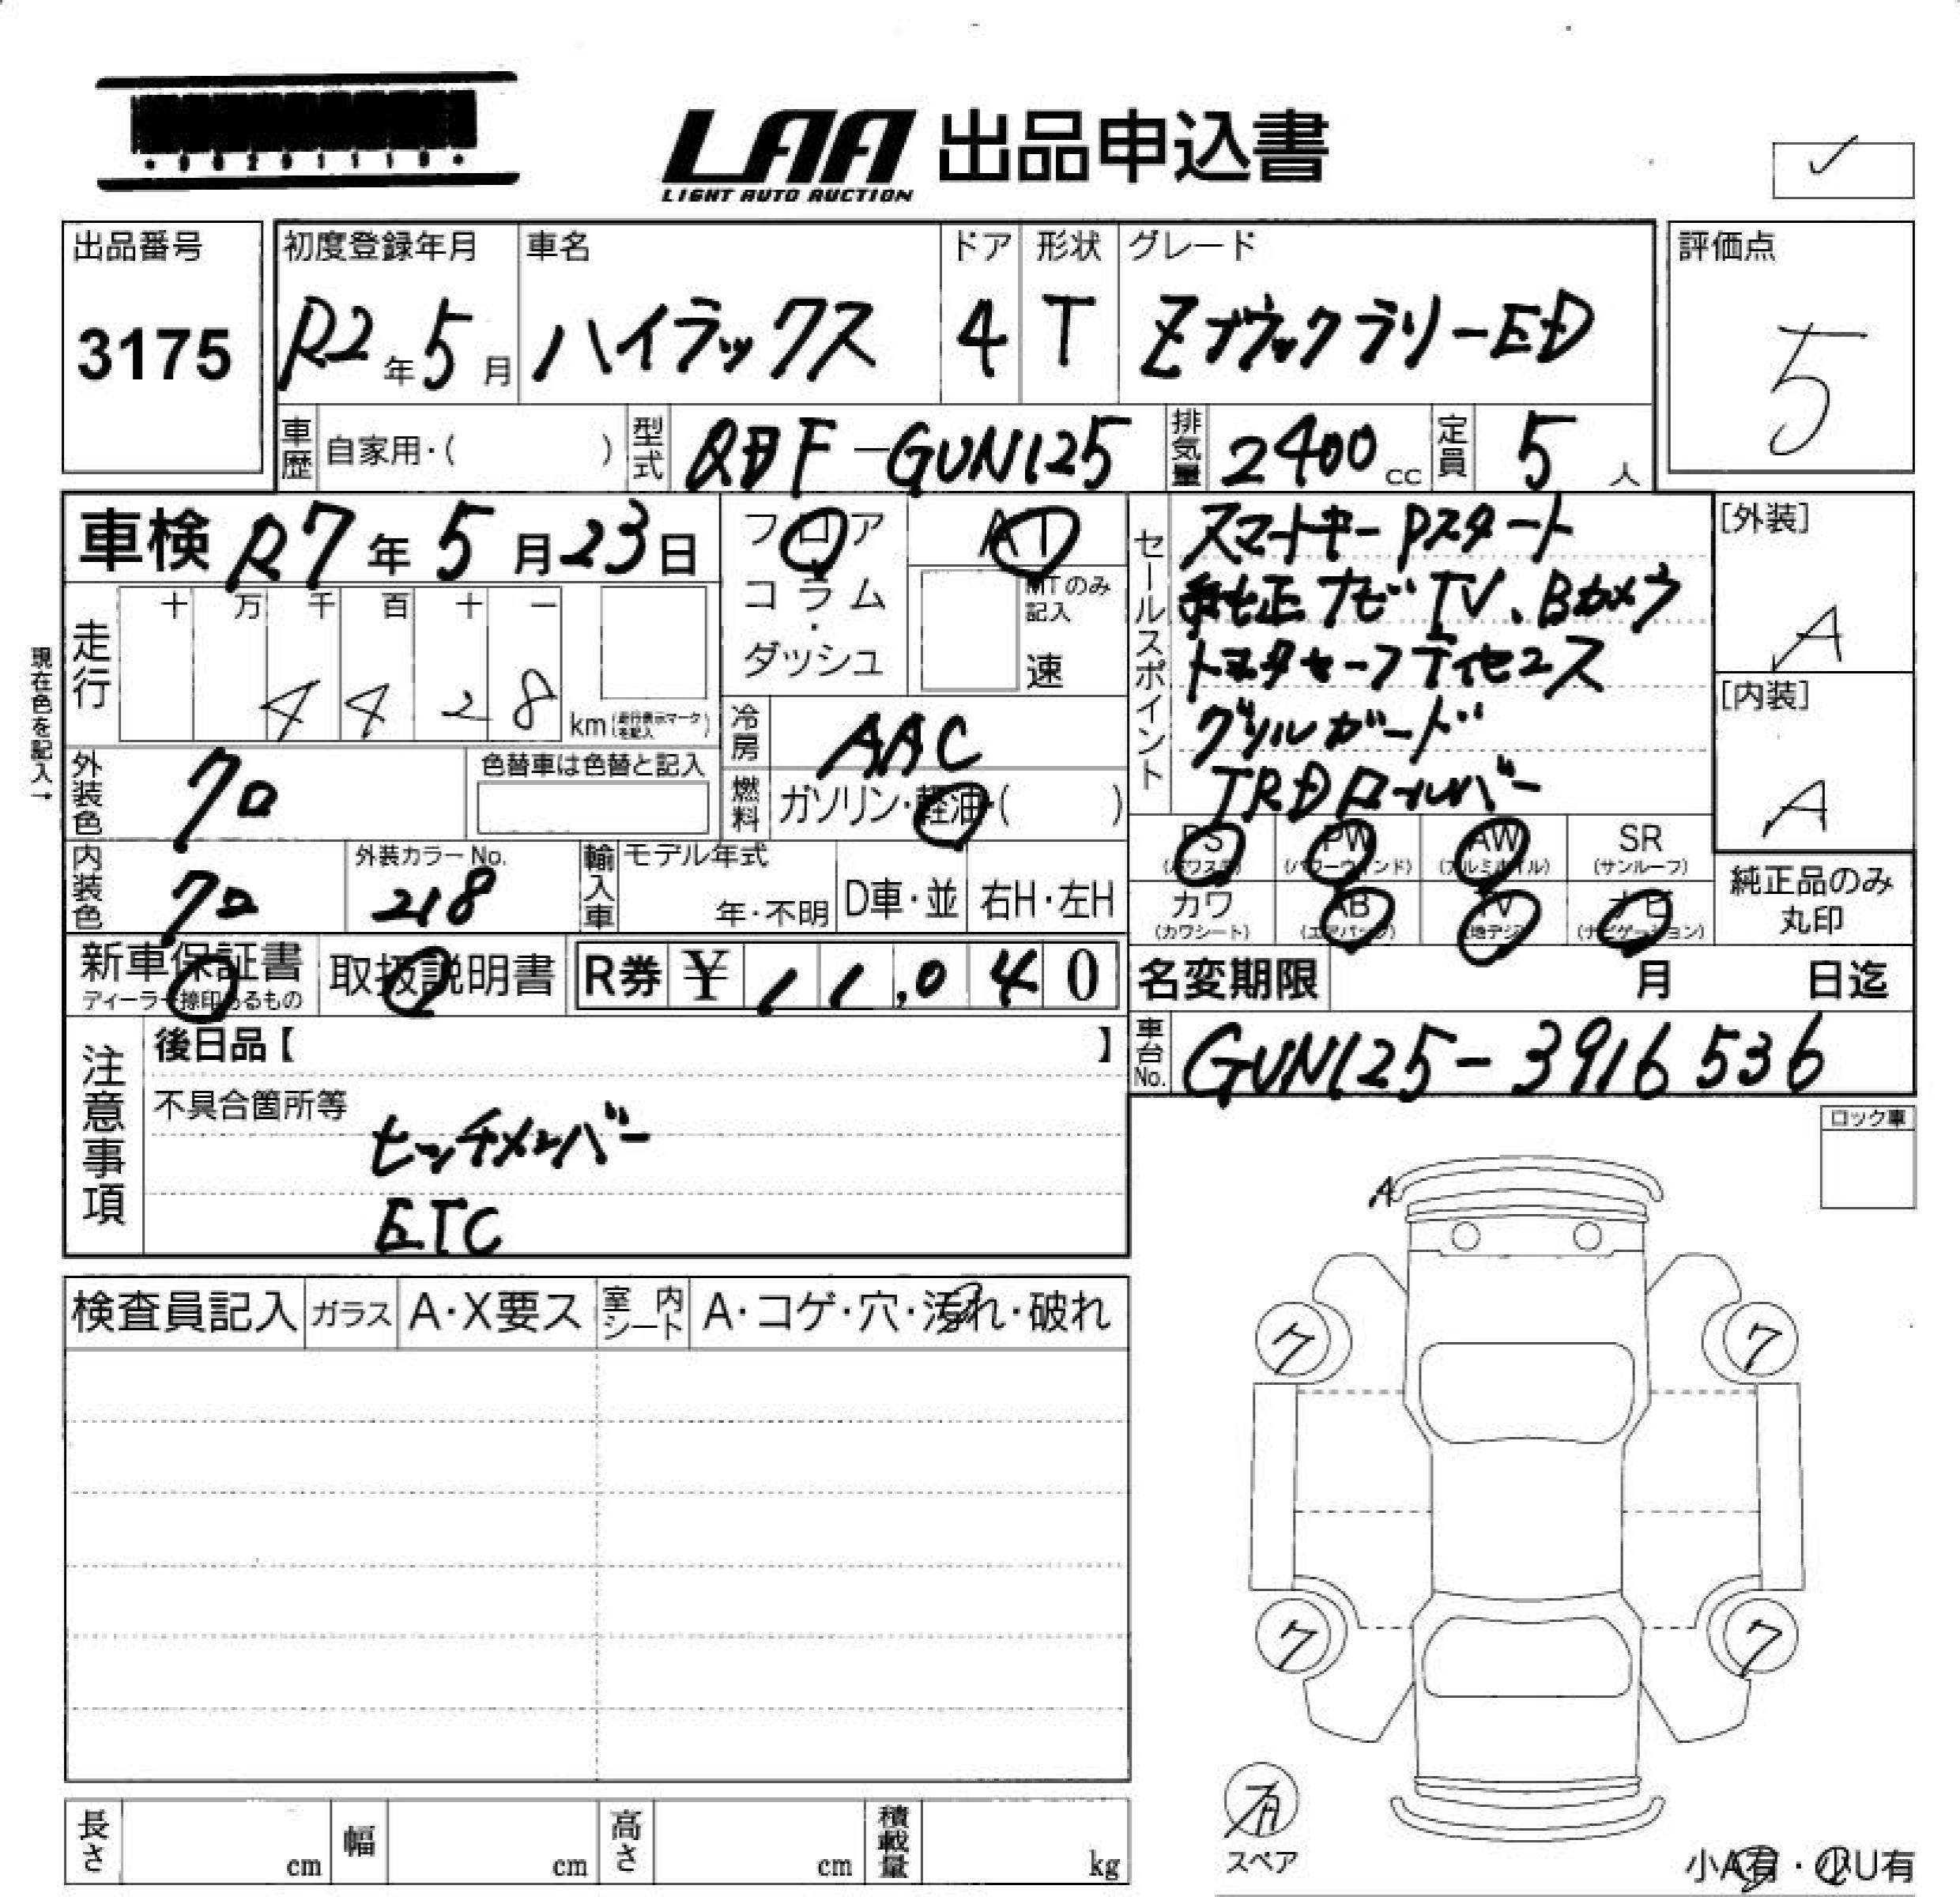 LAA 出品申込書
LIGHT AUTO AUCTION
出品番号
3175
初度登録年月
R2年5月
車名
ハイラックス
ドア
4
形状
T
グレード
ZブラックラリーED
評価点
5
車歴 自家用・( )
型式 QDF-GUN125
排気量 2400cc
定員 5人
車検 R7年5月23日
フロア
コラム
・
ダッシュ
AT
MTのみ
記入
速
セールスポイント
スマートキー Pスタート
純正ナビ TV、Bカメラ
トヨタセーフティセンス
グリルガード
TRDロールバー
[外装]
A
[内装]
A
現在色を記入→
走行
十 万 千 百 十 一
4 4 2 8
km(走行表示マークを記入)
冷房 AAC
燃料 ガソリン・軽油・( )
外装色 クロ
色替車は色替と記入
内装色 クロ
外装カラーNo.
218
輸入車
モデル年式
年・不明
D車・並
右H・左H
PS
(パワステ)
PW
(パワーウィンド)
AW
(アルミホイル)
SR
(サンルーフ)
カワ
(カワシート)
AB
(エアバック)
TV
(地デジ)
ナビ
(ナビゲーション)
純正品のみ
丸印
新車保証書
ディーラー捺印あるもの
取扱説明書
R券 ¥ 11,040
名変期限 月 日迄
車台No. GUN125-3916536
注意事項
後日品【 】
不具合箇所等
ヒッチメンバー
ETC
ロック車
A
検査員記入
ガラス A・X要ス
室内シート A・コゲ・穴・汚れ・破れ
ワ
ワ
ワ
ワ
有
スペア
小A有・小U有
長さ cm
幅 cm
高さ cm
積載量 kg